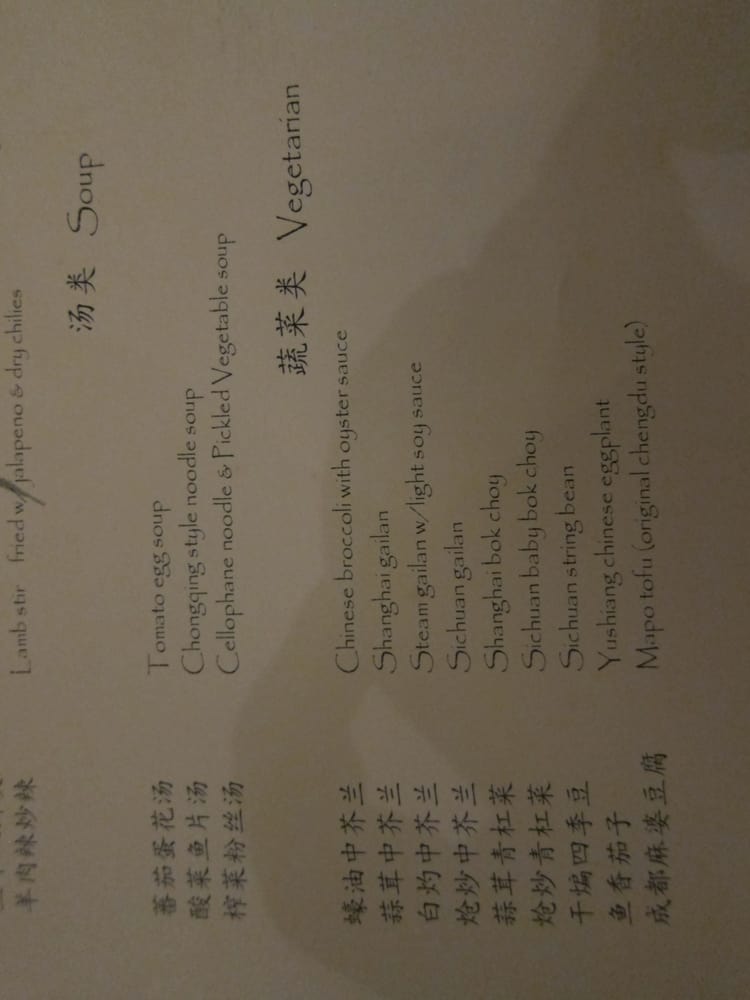 羊肉辣炒辣 Lamb stir fried w/ jalapeno & dry chilies
汤类 Soup
蕃茄蛋花汤 Tomato egg soup
酸菜鱼片汤 Chongqing style noodle soup
榨菜粉丝汤 Cellophane noodle & Pickled Vegetable soup
蔬菜类 Vegetarian
蠔油中芥兰 Chinese broccoli with oyster sauce
蒜茸中芥兰 Shanghai gailan
白灼中芥兰 Steam gailan w/light soy sauce
炝炒中芥兰 Sichuan gailan
蒜茸青杠菜 Shanghai bok choy
炝炒青杠菜 Sichuan baby bok choy
干煸四季豆 Sichuan string bean
鱼香茄子 Yushiang chinese eggplant
成都麻婆豆腐 Mapo tofu (original chengdu style)